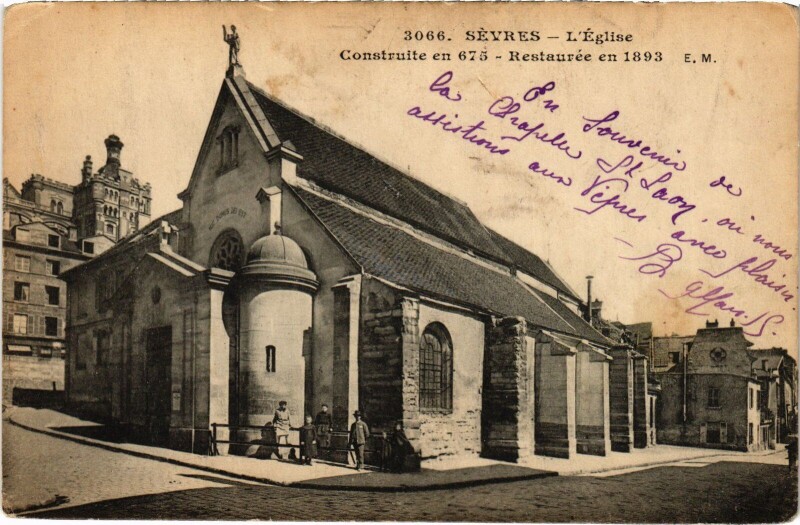 3066. SÈVRES – L'Église
Construite en 675 - Restaurée en 1893 E. M.
En Souvenir de
la Chapelle St Laon, où nous
assistions aux Vêpres avec plaisir